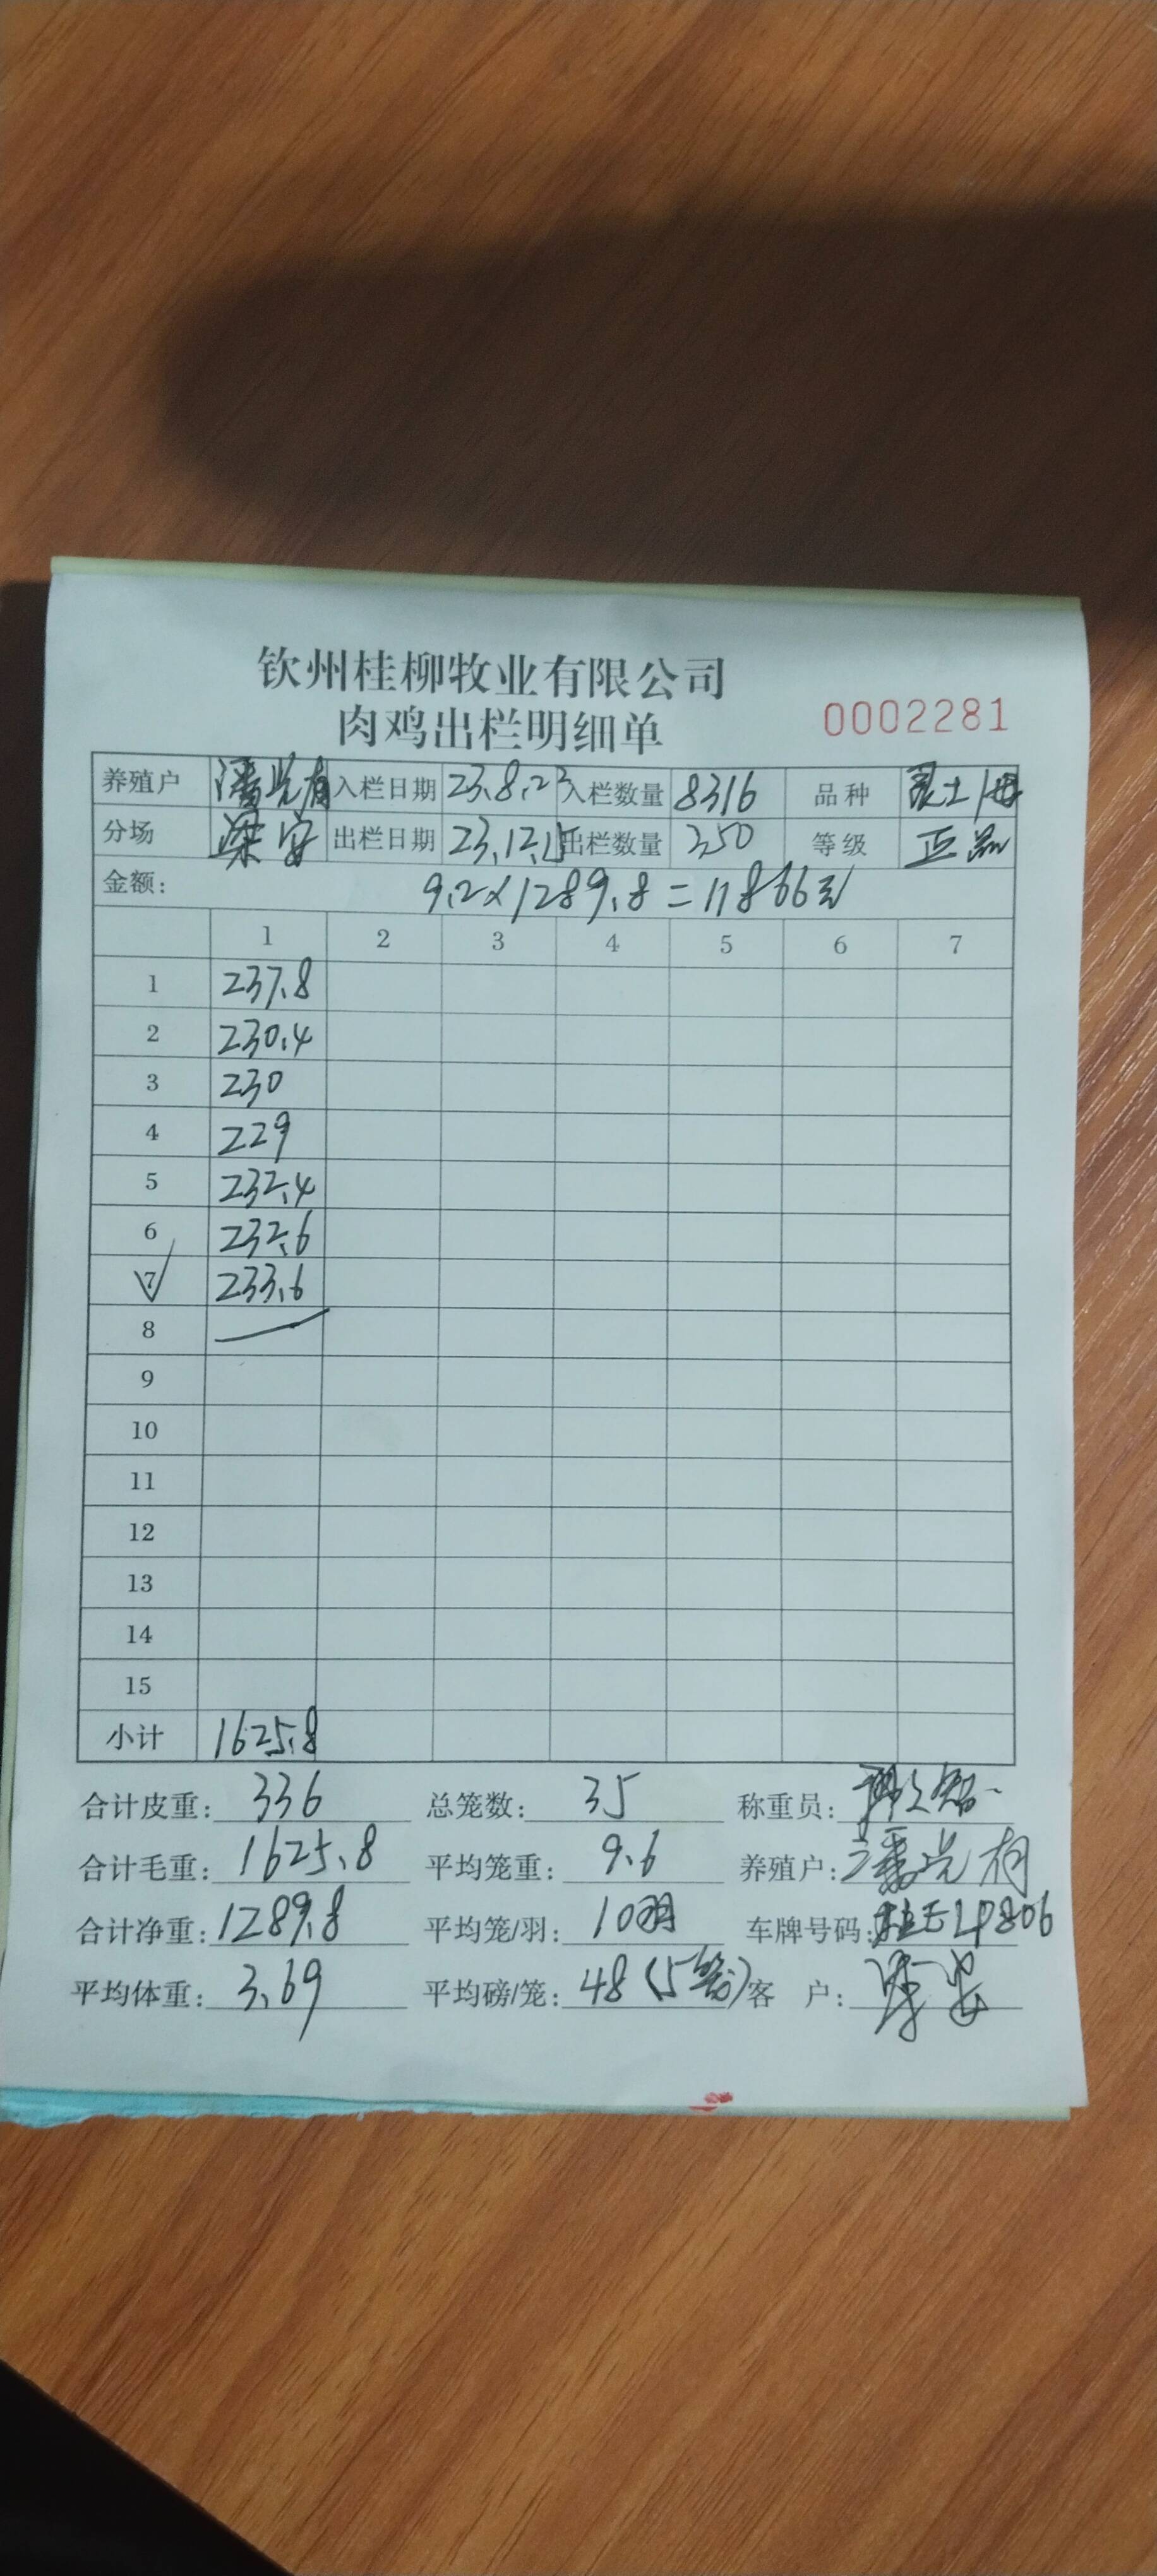 钦州桂柳牧业有限公司
肉鸡出栏明细单 0002281
养殖户 潘光有 入栏日期 23.8.23 入栏数量 8316 品种 灵土1母
分场 梁安 出栏日期 23.12.15 出栏数量 350 等级 正品
金额: 9.2×1289.8=11866元
1 2 3 4 5 6 7
1 237.8
2 230.4
3 230
4 229
5 232.4
6 232.6
7 233.6
8
9
10
11
12
13
14
15
小计 1625.8
合计皮重: 336 总笼数: 35 称重员:
合计毛重: 1625.8 平均笼重: 9.6 养殖户: 潘光有
合计净重: 1289.8 平均笼/羽: 10羽 车牌号码: 桂ELP806
平均体重: 3.69 平均磅/笼: 48(5笼) 客 户: